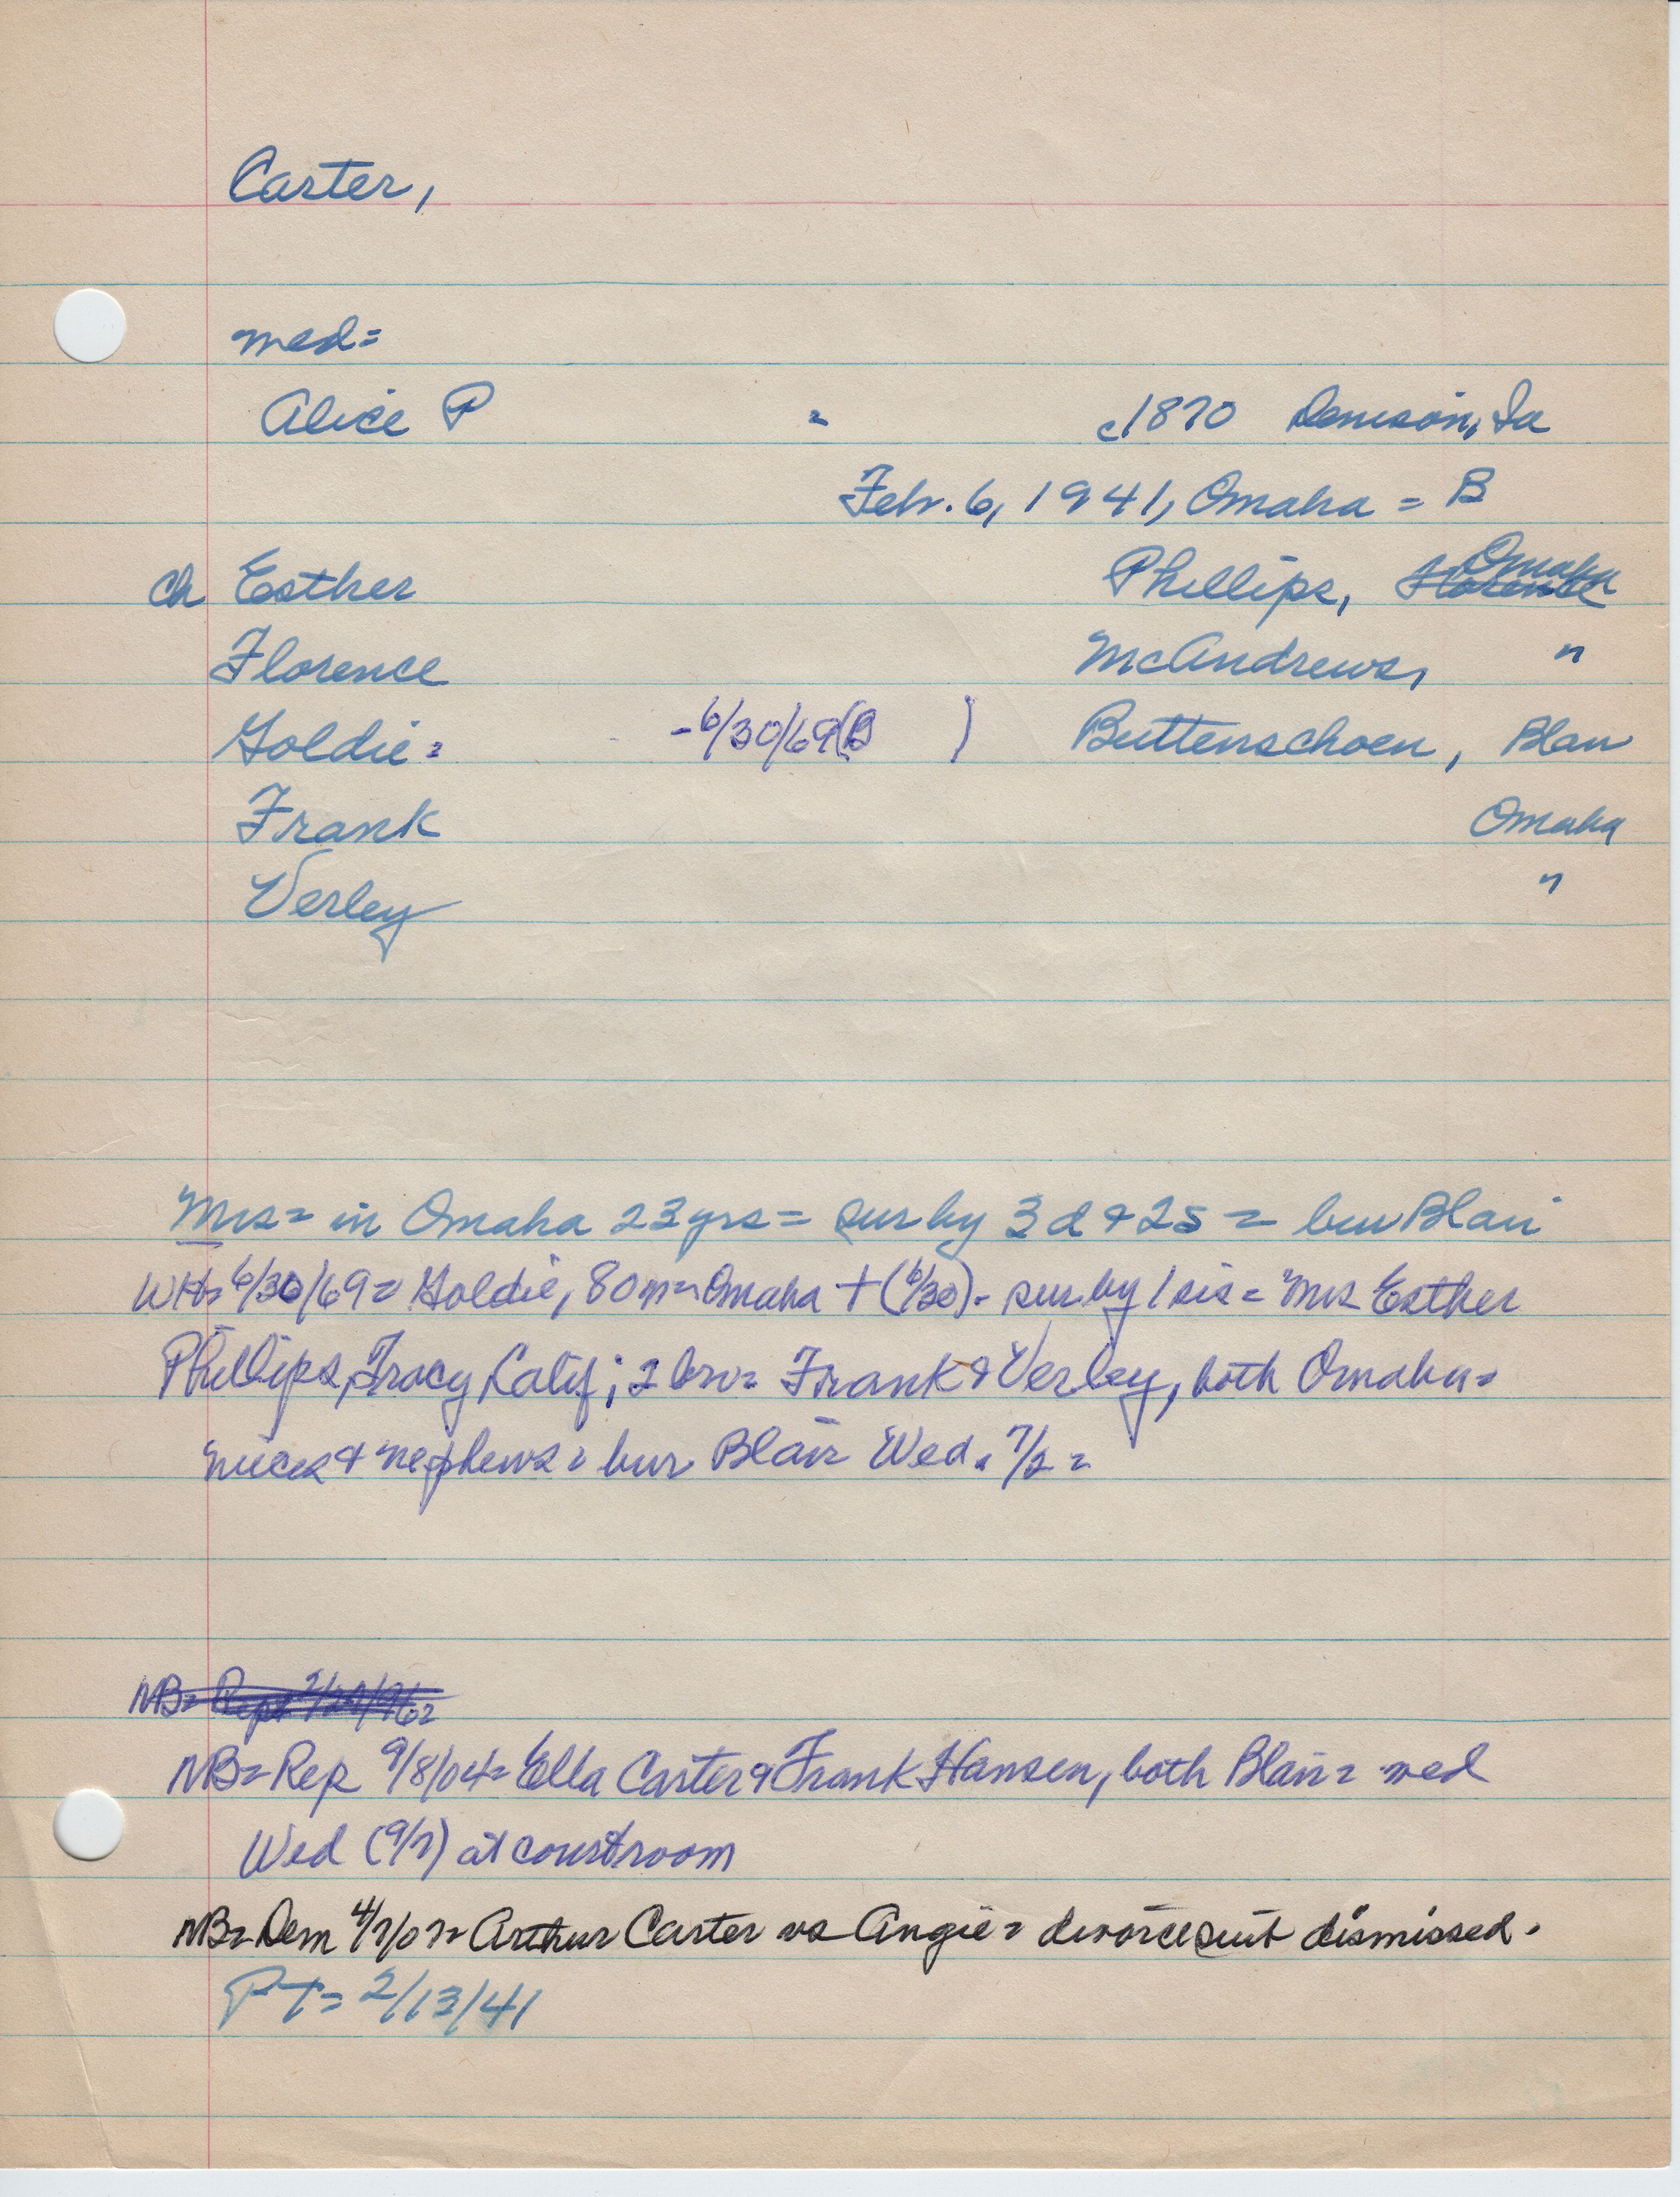 Carter,
med=
Alice P = c1870 Denison, Ia
Feb. 6, 1941, Omaha = B
ch Esther Phillips, Omaha
Florence McAndrews, "
Goldie= -6/30/69(B ) Buttenschoen, Blair
Frank Omaha
Verley "
Mrs= in Omaha 23 yrs= sur by 3 d & 2 s = bur Blair
WH= 6/30/69= Goldie, 80 = Omaha + (6/30)= sur by 1 sis= Mrs Esther
Phillips, Tracy Calif; 2 bro= Frank & Verley, both Omaha=
nieces & nephews= bur Blair Wed. 7/2=
NB=
NB= Rep 9/8/04= Ella Carter & Frank Hansen, both Blair= med
Wed (9/7) at courtroom
NB= Dem 4/7/07= Arthur Carter vs Angie= divorce suit dismissed.
PT= 2/13/41